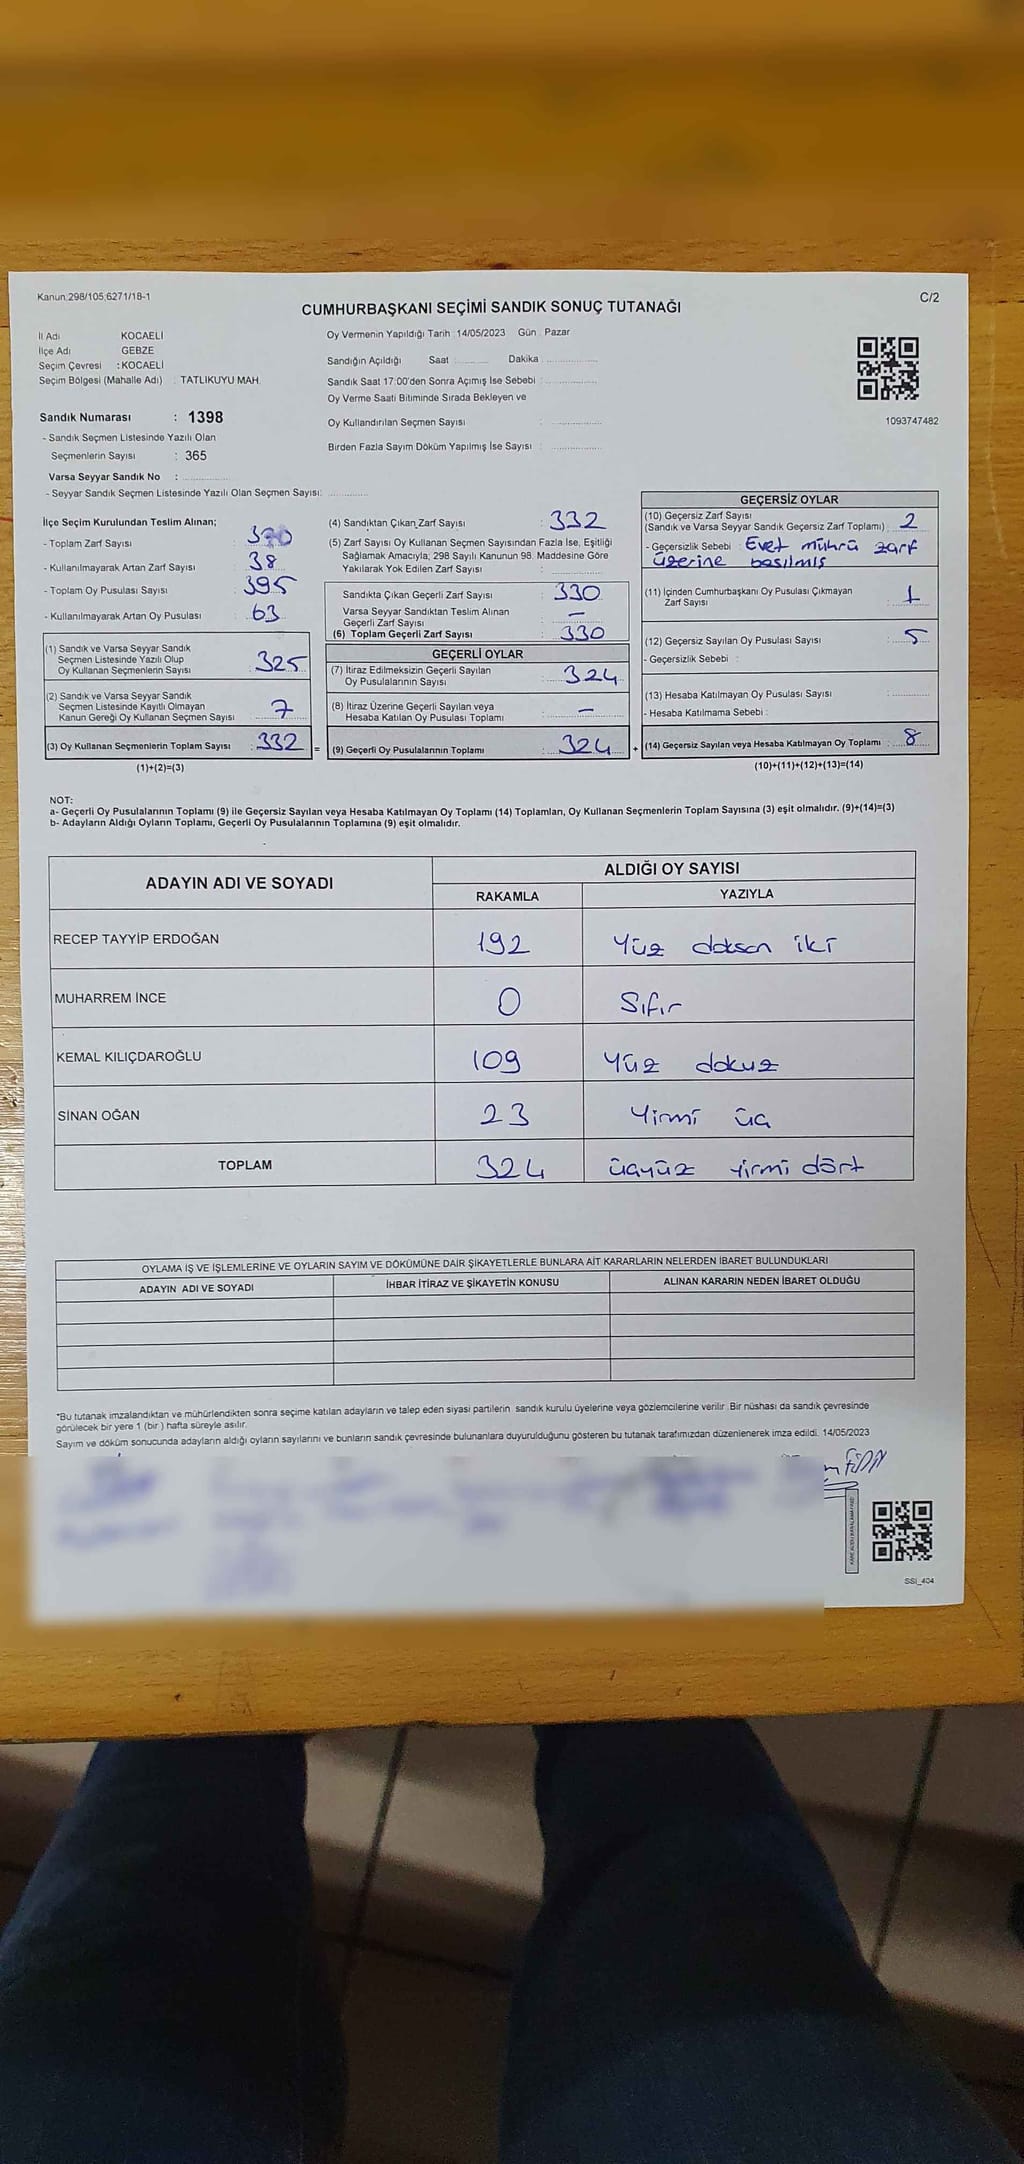 Kanun:298/105,6271/18-1
C/2
CUMHURBAŞKANI SEÇİMİ SANDIK SONUÇ TUTANAĞI
İl Adı KOCAELİ
İlçe Adı GEBZE
Seçim Çevresi : KOCAELİ
Seçim Bölgesi (Mahalle Adı) : TATLIKUYU MAH.
Sandık Numarası : 1398
- Sandık Seçmen Listesinde Yazılı Olan
Seçmenlerin Sayısı : 365
Varsa Seyyar Sandık No :
- Seyyar Sandık Seçmen Listesinde Yazılı Olan Seçmen Sayısı:
Oy Vermenin Yapıldığı Tarih : 14/05/2023 Gün : Pazar
Sandığın Açıldığı Saat Dakika
Sandık Saat 17:00'den Sonra Açımış İse Sebebi :
Oy Verme Saati Bitiminde Sırada Bekleyen ve
Oy Kullandırılan Seçmen Sayısı :
Birden Fazla Sayım Döküm Yapılmış İse Sayısı :
1093747482
İlçe Seçim Kurulundan Teslim Alınan;
- Toplam Zarf Sayısı : 370
- Kullanılmayarak Artan Zarf Sayısı : 38
- Toplam Oy Pusulası Sayısı : 395
- Kullanılmayarak Artan Oy Pusulası : 63
(1) Sandık ve Varsa Seyyar Sandık
Seçmen Listesinde Yazılı Olup
Oy Kullanan Seçmenlerin Sayısı : 325
(2) Sandık ve Varsa Seyyar Sandık
Seçmen Listesinde Kayıtlı Olmayan
Kanun Gereği Oy Kullanan Seçmen Sayısı : 7
(3) Oy Kullanan Seçmenlerin Toplam Sayısı : 332 =
(1)+(2)=(3)
(4) Sandıktan Çıkan Zarf Sayısı : 332
(5) Zarf Sayısı Oy Kullanan Seçmen Sayısından Fazla İse, Eşitliği
Sağlamak Amacıyla; 298 Sayılı Kanunun 98. Maddesine Göre
Yakılarak Yok Edilen Zarf Sayısı :
Sandıkta Çıkan Geçerli Zarf Sayısı : 330
Varsa Seyyar Sandıktan Teslim Alınan
Geçerli Zarf Sayısı : —
(6) Toplam Geçerli Zarf Sayısı : 330
GEÇERLİ OYLAR
(7) İtiraz Edilmeksizin Geçerli Sayılan
Oy Pusulalarının Sayısı : 324
(8) İtiraz Üzerine Geçerli Sayılan veya
Hesaba Katılan Oy Pusulası Toplamı : —
(9) Geçerli Oy Pusulalarının Toplamı : 324 +
GEÇERSİZ OYLAR
(10) Geçersiz Zarf Sayısı
(Sandık ve Varsa Seyyar Sandık Geçersiz Zarf Toplamı) : 2
- Geçersizlik Sebebi : Evet mührü zarf
üzerine basılmış
(11) İçinden Cumhurbaşkanı Oy Pusulası Çıkmayan
Zarf Sayısı : 1
(12) Geçersiz Sayılan Oy Pusulası Sayısı : 5
- Geçersizlik Sebebi :
(13) Hesaba Katılmayan Oy Pusulası Sayısı
- Hesaba Katılmama Sebebi :
(14) Geçersiz Sayılan veya Hesaba Katılmayan Oy Toplamı : 8
(10)+(11)+(12)+(13)=(14)
NOT:
a- Geçerli Oy Pusulalarının Toplamı (9) ile Geçersiz Sayılan veya Hesaba Katılmayan Oy Toplamı (14) Toplamları, Oy Kullanan Seçmenlerin Toplam Sayısına (3) eşit olmalıdır. (9)+(14)=(3)
b- Adayların Aldığı Oyların Toplamı, Geçerli Oy Pusulalarının Toplamına (9) eşit olmalıdır.
ADAYIN ADI VE SOYADI ALDIĞI OY SAYISI
RAKAMLA YAZIYLA
RECEP TAYYİP ERDOĞAN 192 Yüz doksan iki
MUHARREM İNCE 0 Sıfır
KEMAL KILIÇDAROĞLU 109 Yüz dokuz
SİNAN OĞAN 23 Yirmi üç
TOPLAM 324 üçyüz yirmi dört
OYLAMA İŞ VE İŞLEMLERİNE VE OYLARIN SAYIM VE DÖKÜMÜNE DAİR ŞİKAYETLERLE BUNLARA AİT KARARLARIN NELERDEN İBARET BULUNDUKLARI
ADAYIN ADI VE SOYADI İHBAR İTİRAZ VE ŞİKAYETİN KONUSU ALINAN KARARIN NEDEN İBARET OLDUĞU
*Bu tutanak imzalandıktan ve mühürlendikten sonra seçime katılan adayların ve talep eden siyasi partilerin sandık kurulu üyelerine veya gözlemcilerine verilir. Bir nüshası da sandık çevresinde
görülecek bir yere 1 (bir ) hafta süreyle asılır.
Sayım ve döküm sonucunda adayların aldığı oyların sayılarını ve bunların sandık çevresinde bulunanlara duyurulduğunu gösteren bu tutanak tarafımızdan düzenlenerek imza edildi. 14/05/2023
SSİ_404